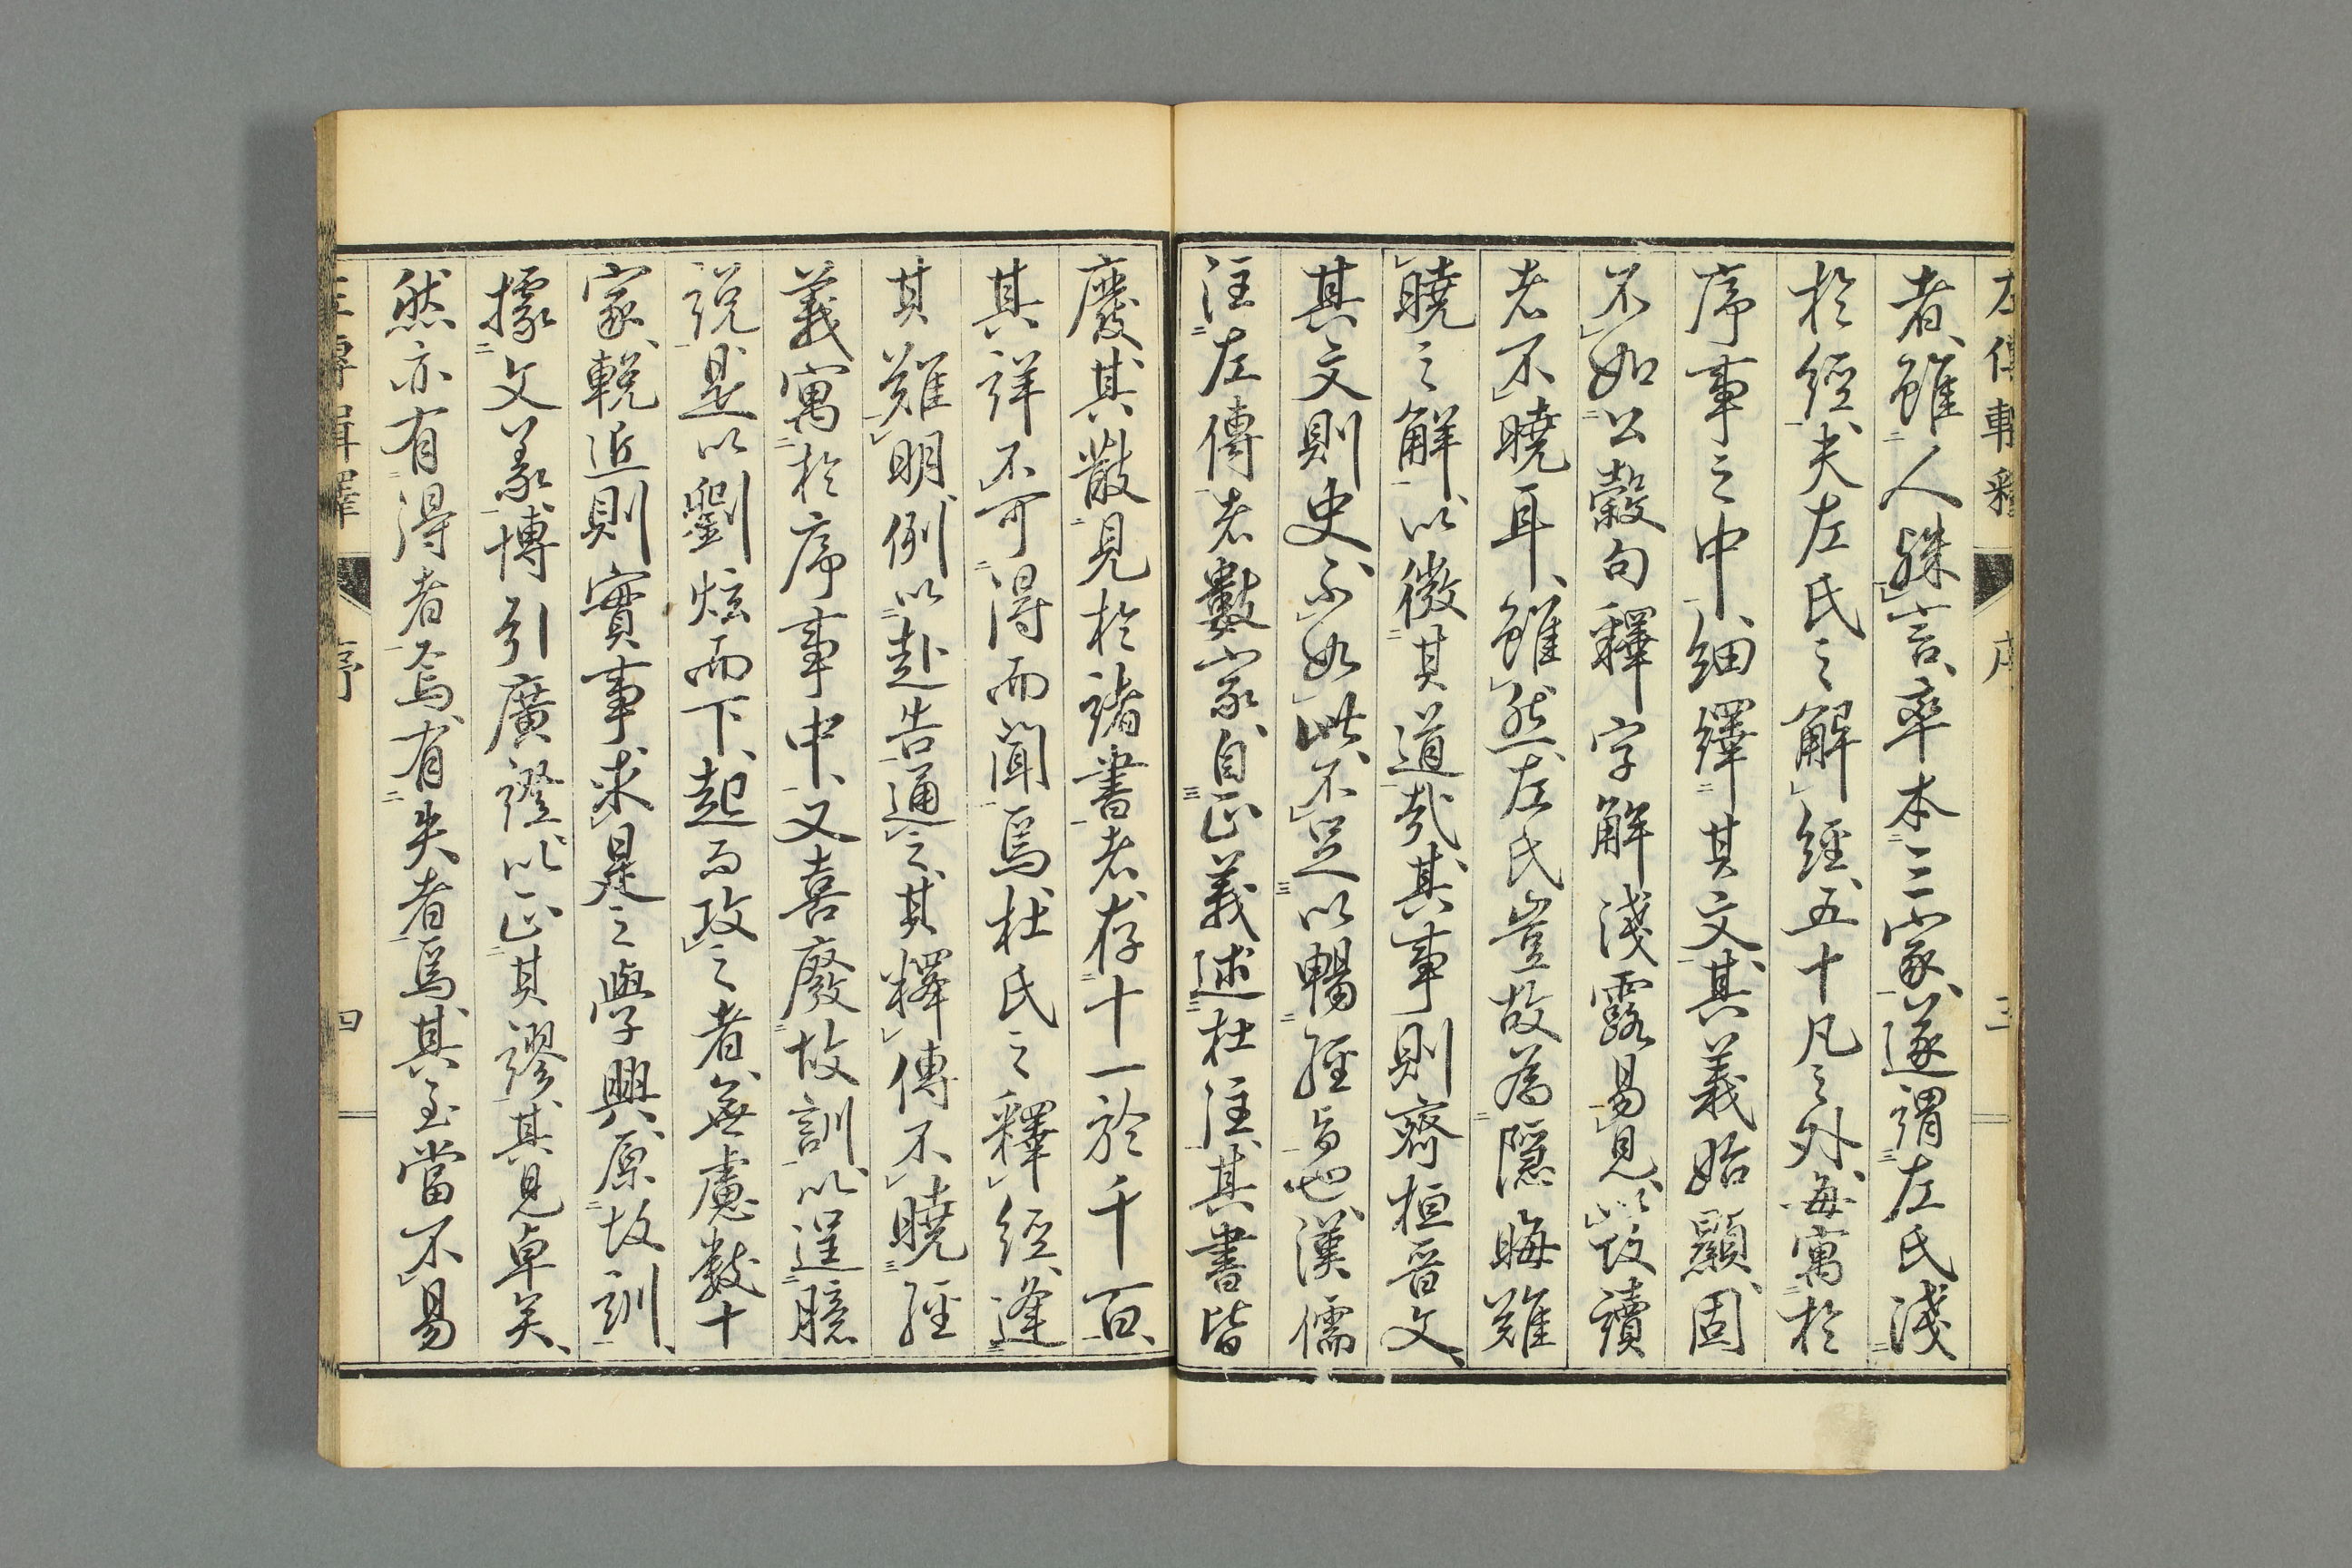 者雖人殊言率本三家遂謂左氏淺
於經夫左氏之解經五十凡之外每寓於
序事之中細繹其文其義始顯固
不如公穀句釋字解淺露易見以故讀
者不曉耳雖然左氏豈故為隱晦難
曉之解以微其道哉其事則齊桓晉文
其文則史不如此不足以暢經旨也漢儒
注左傳者數家自正義述杜注其書皆
廢其散見於諸書者存十一於千百
其詳不可得而聞焉杜氏之釋經逢
其難明例以赴告通之其釋傳不曉經
義寓於序事中又喜廢故訓以逞臆
說是以劉炫而下起而攻之者無慮數十
家輓近則實事求是之學興原故訓
據文義博引廣證以正其謬其見卓矣
然亦有得者焉有失者焉其至當不易
左傳輯釋 序 三
左傳輯釋 序 四